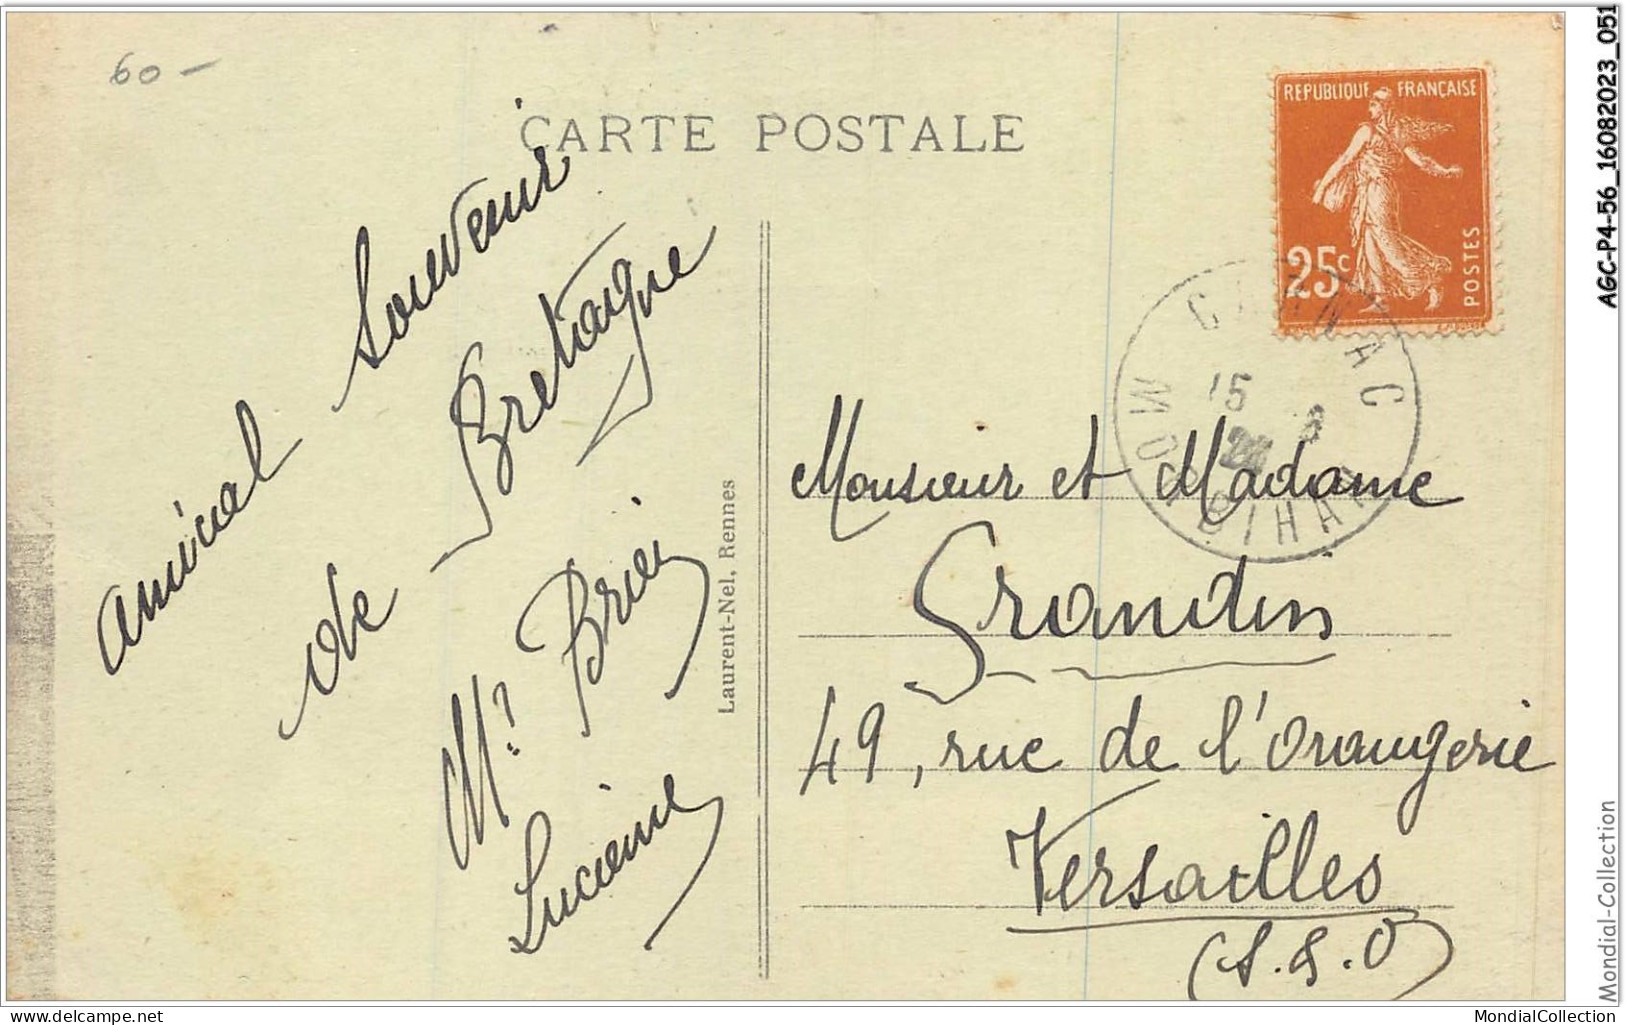 60 –
CARTE POSTALE
REPUBLIQUE FRANÇAISE
25c
POSTES
CARNAC
15 8
MORBIHAN
amical Souvenir
de Bretagne
Lucienne
Laurent-Nel, Rennes
Monsieur et Madame
Grandin
49, rue de l'Orangerie
Versailles
(S.&.O)
AGC-P4-56_16082023_051
Mondial-Collection
delcampe.net
MondialCollection